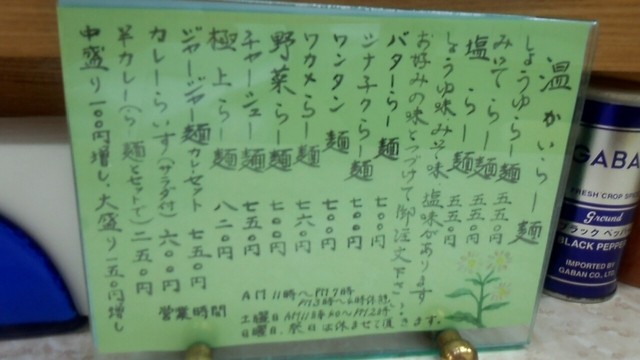 温かいらー麺
しょうゆらー麺 五五〇円
みそらー麺 五五〇円
塩らー麺 五五〇円
しょうゆ味みそ味 塩味があります
お好みの味とつづけて御注文下さい。
バターらー麺 七〇〇円
シナチクらー麺 七〇〇円
ワンタン麺 七〇〇円
ワカメらー麺 七六〇円
野菜らー麺 七〇〇円
チャーシュー麺 七五〇円
極上らー麺 八二〇円
ジャージャー麺 カレーセット 七五〇円
カレーらいす(サラダ付) 六〇〇円
半カレー(らー麺とセットで) 二五〇円
中盛り一〇〇円増し、大盛り一五〇円増し
営業時間
AM11時〜PM7時
PM3時〜 時休憩
土曜日AM11時30〜PM2時
日曜日、祭日は休ませて頂きます。
GABA
FRESH CROP
Ground
ブラックペッパ
BLACK PEPPE
IMPORTED BY
GABAN CO., LTD.